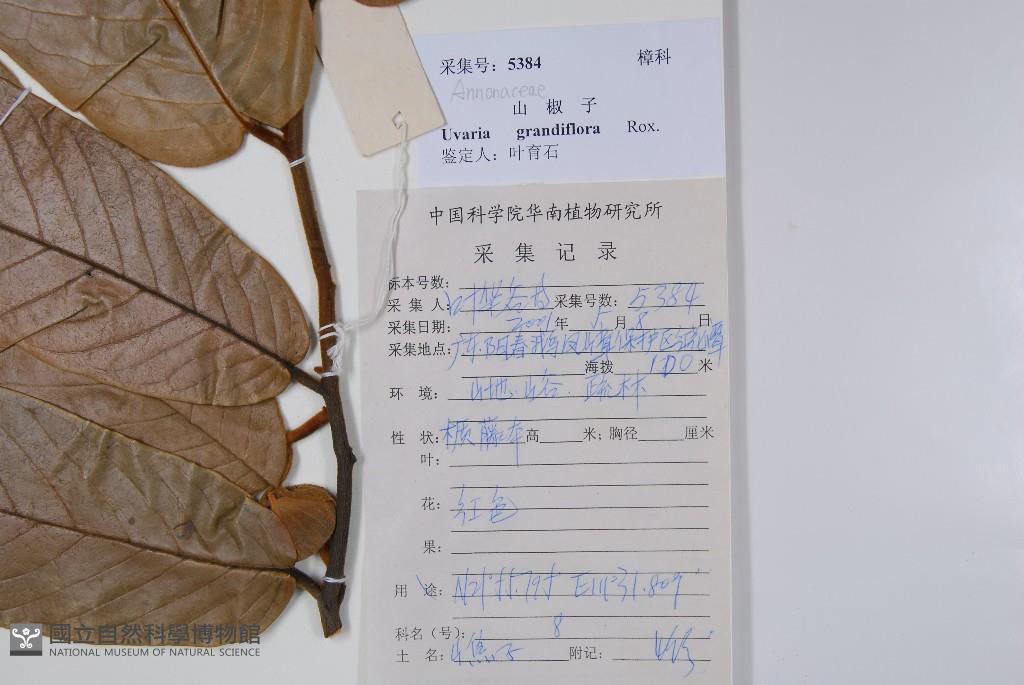 采集号：5384 樟科
Annonaceae
山 椒 子
Uvaria grandiflora Rox.
鉴定人：叶育石
中国科学院华南植物研究所
采 集 记 录
标本号数：
采 集 人 叶华谷 采集号数：5384
采集日期：2001年 5月 8日
采集地点：广东.阳春鹅凰嶂保护区
海拨 100 米
环 境：山地.山谷.疏林
性 状：木质藤本 高 米；胸径 厘米
叶：
花：红色
果：
用 途：N21° E111°31.809'
科名（号）：8
土 名：山焦子 附记：
國立自然科學博物館
NATIONAL MUSEUM OF NATURAL SCIENCE